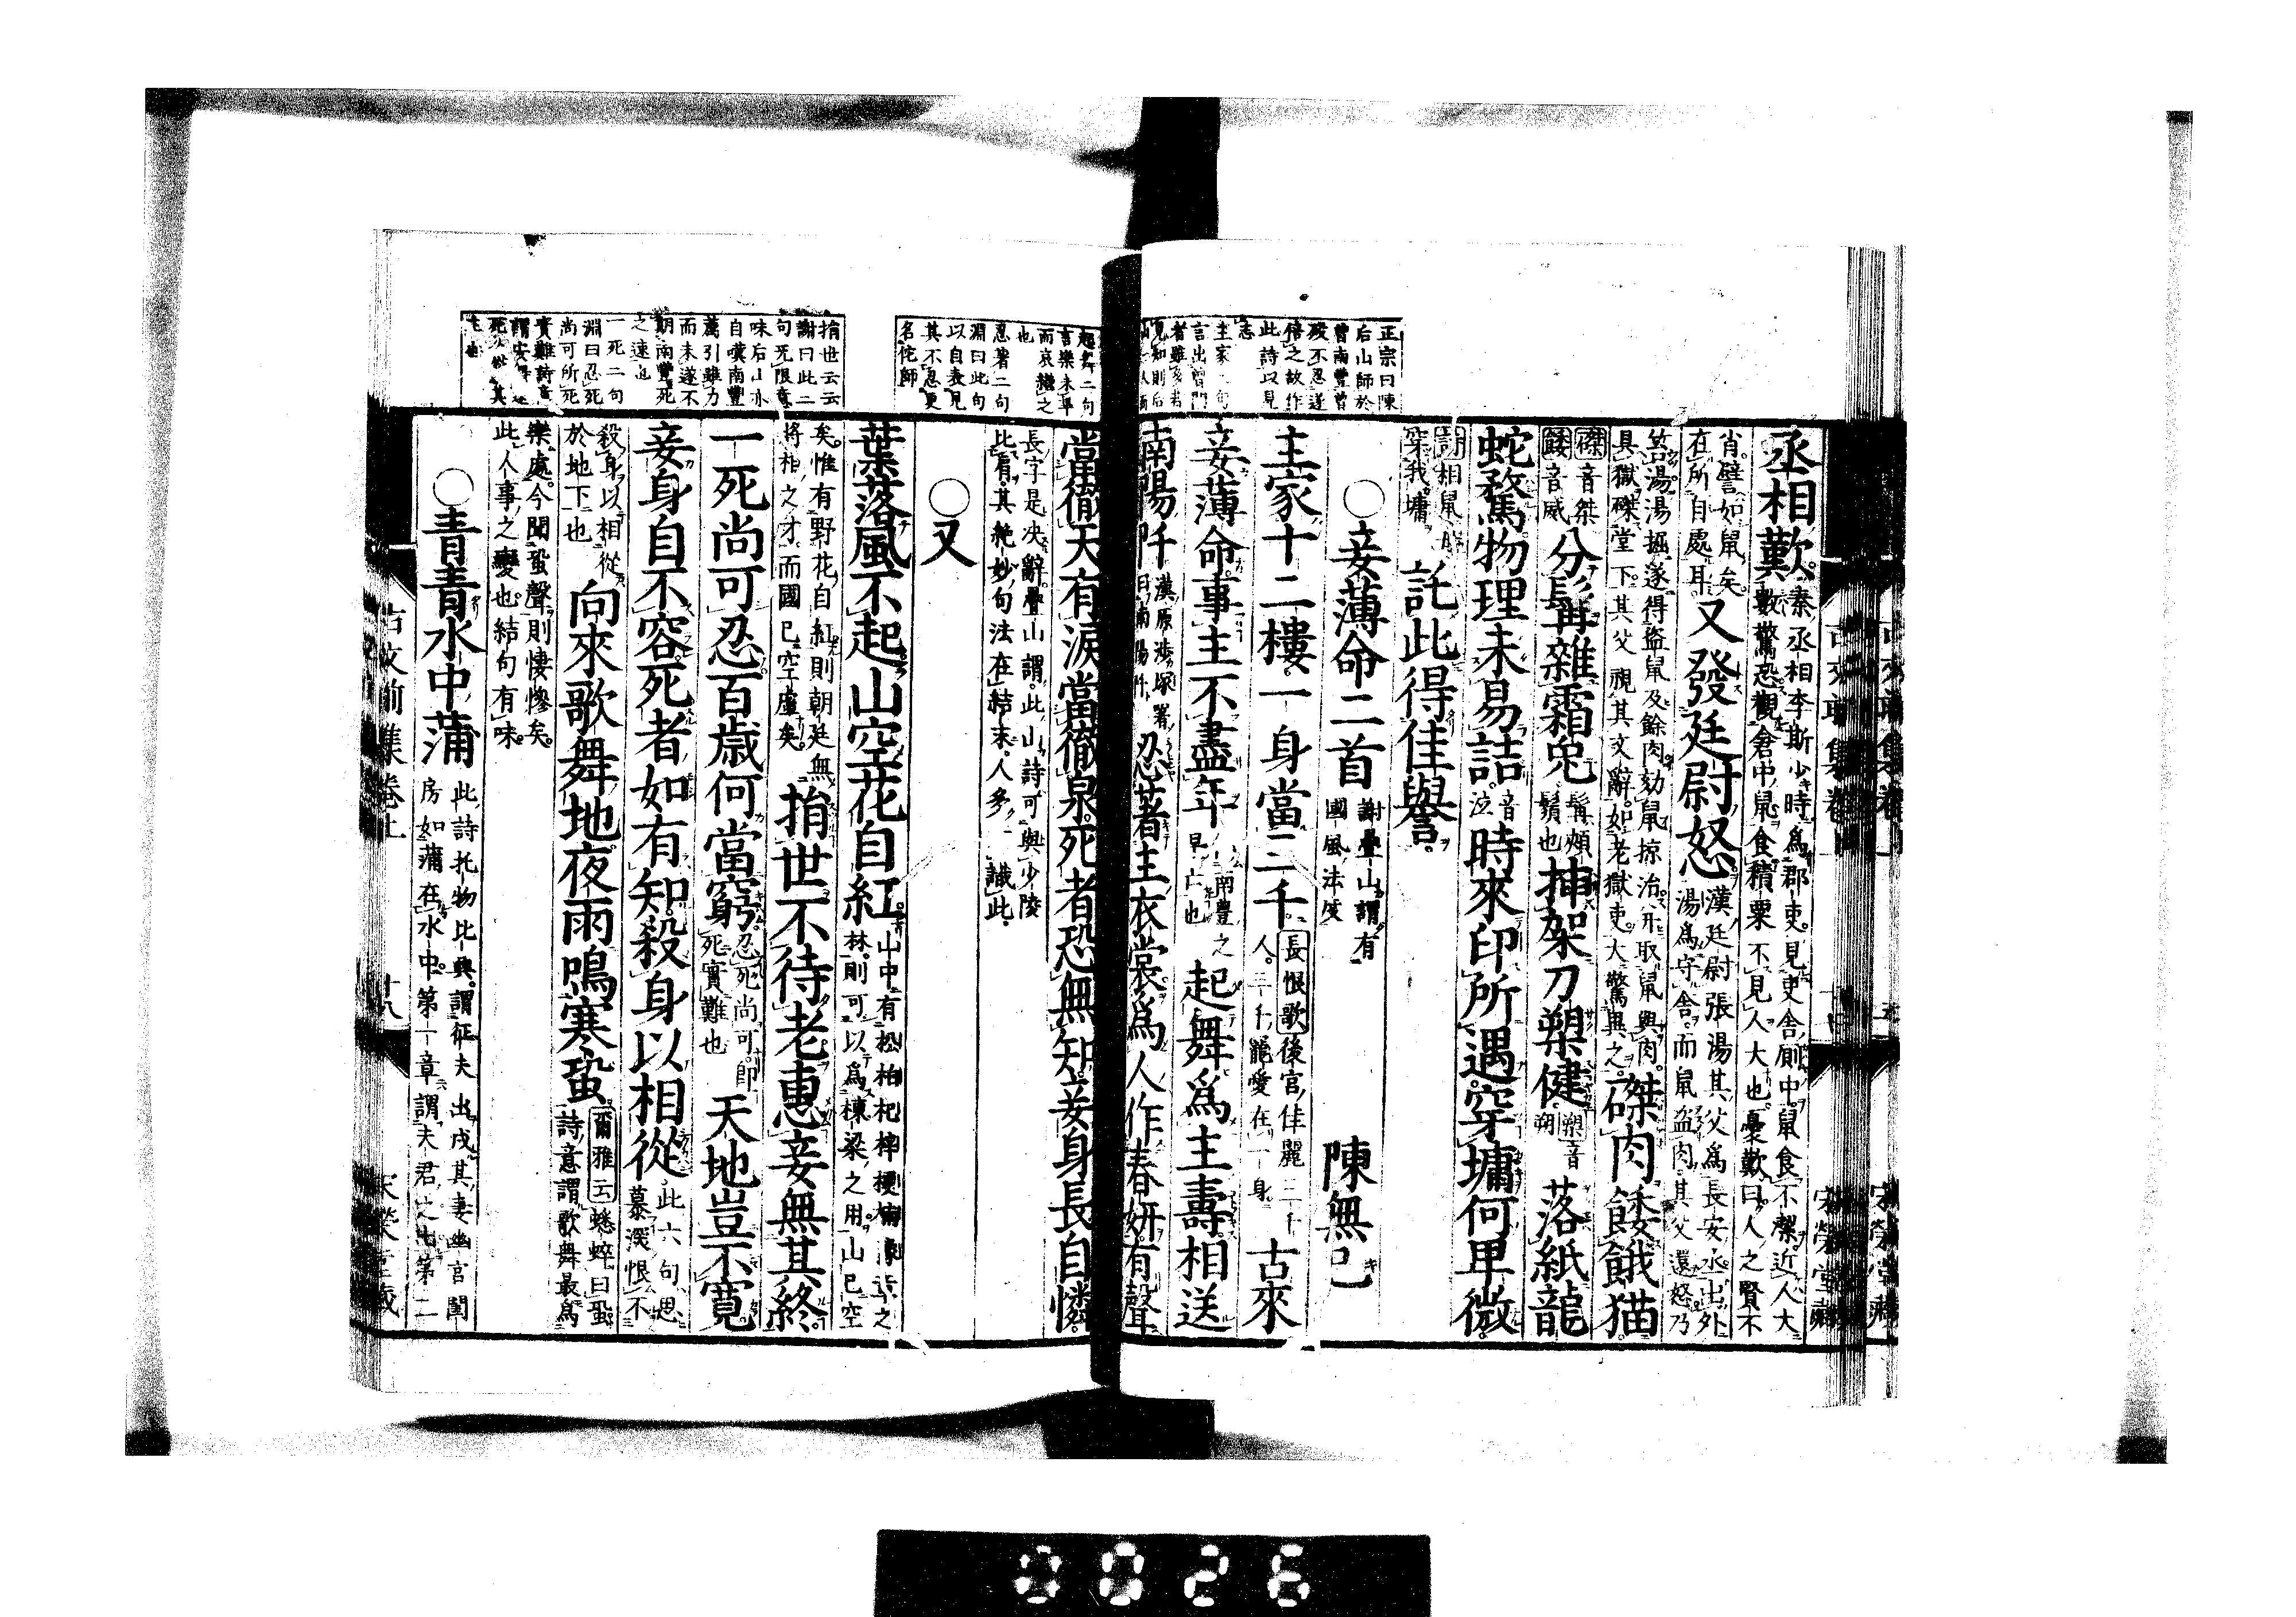 正宗曰陳
后山師於
曾南豐曾
歿不忍遂
倍之故作
此詩以見
志
主家二句
言出曾門
者雖多若
見知則后
丞相歎秦丞相李斯少時爲郡吏見吏舍厠中鼠食不潔近人犬
數驚恐觀倉中鼠食積粟不見人犬也憂歎曰人之賢不
肖譬如鼠矣
在所自處耳又發廷尉怒漢廷尉張湯其父爲長安丞出外
湯爲守舍而鼠盜肉其父還怒乃
笞湯湯掘遂得盜鼠及餘肉劾鼠掠治并取鼠與肉
具獄磔堂下其父視其文辭如老獄吏大驚異之磔肉餧餓猫
磔音桀
餧音威分髯雜霜兔髯頰
鬚也挿架刀槊健槊音
朔落紙龍
蛇騖物理未易詰音
泣時來印所遇穿墉何卑微
詩相鼠
穿我墉託此得佳譽
○妾薄命二首謝疊山謂有
國風法度陳無己
主家十二樓一身當三千長恨歌後宮佳麗三千
人三千寵愛在一身古來
妾薄命事主不盡年南豐之
早亡也起舞爲主壽相送
南陽阡漢原涉塚署
曰南陽阡忍著主衣裳爲人作春妍有聲
起舞二句
言樂未畢
而哀繼之
也
忍著二句
淵曰此句
以自表見
其不忍更
名佗師
當徹天有淚當徹泉死者恐無知妾身長自憐
長字是决辭疊山謂此山詩可與少陵
比肩其絶妙句法在結末人多識此
○又
捐世云云
謝曰此二
句死限意
味后山亦
自嘆南豐
薦引雖力
而未遂不
期南豐死
之速也
一死二句
淵曰忍死
尚可所死
實難詩意
葉落風不起山空花自紅山中有松柏杞梓楩楠之
林則可以爲棟梁之用山已空
矣惟有野花自紅則朝廷無
將相之才而國已空虛矣捐世不待老惠妾無其終
一死尚可忍百歲何當窮忍死尚可即
死實難也天地豈不寬
妾身自不容死者如有知殺身以相從此六句思
慕深恨不
殺身以相從
於地下也向來歌舞地夜雨鳴寒蛩爾雅云蟋蟀曰蛩
詩意謂歌舞最爲
樂處今聞蛩聲則悽慘矣
此人事之變也結句有味
○青青水中蒲此詩托物比興謂征夫出戍其妻幽官閨
房如蒲在水中第一章謂夫君之出第二
古文前集卷上 十八